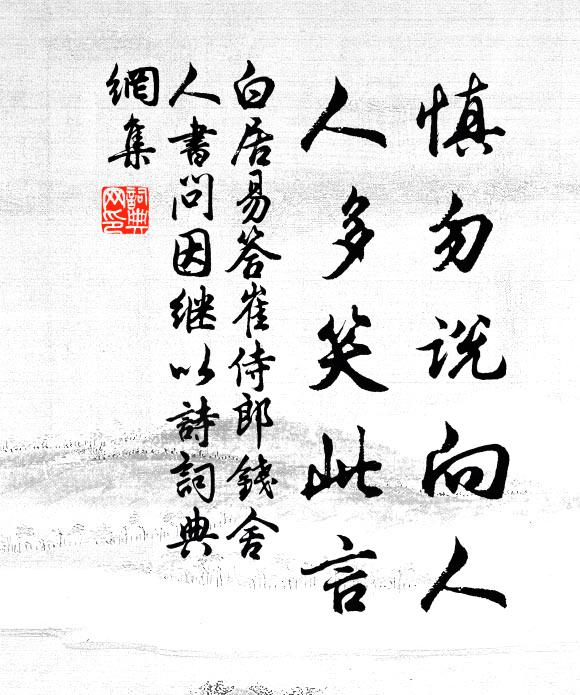 慎勿说向人
人多笑此言
白居易答崔侍郎錢舍
人書問因继以詩詞典
網集
詞典網印